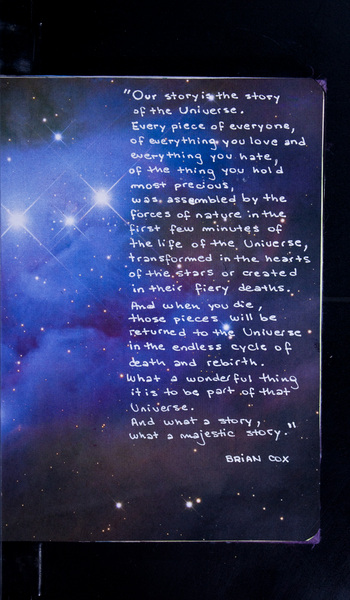 "Our story is the story
of the Universe.
Every piece of everyone,
of everything you love and
everything you hate,
of the thing you hold
most precious,
was assembled by the
forces of nature in the
first few minutes of
the life of the Universe,
transformed in the hearts
of the stars or created
in their fiery deaths.
And when you die,
those pieces will be
returned to the Universe
in the endless cycle of
death and rebirth.
What a wonderful thing
it is to be part of that
Universe.
And what a story,
what a majestic story."
BRIAN COX